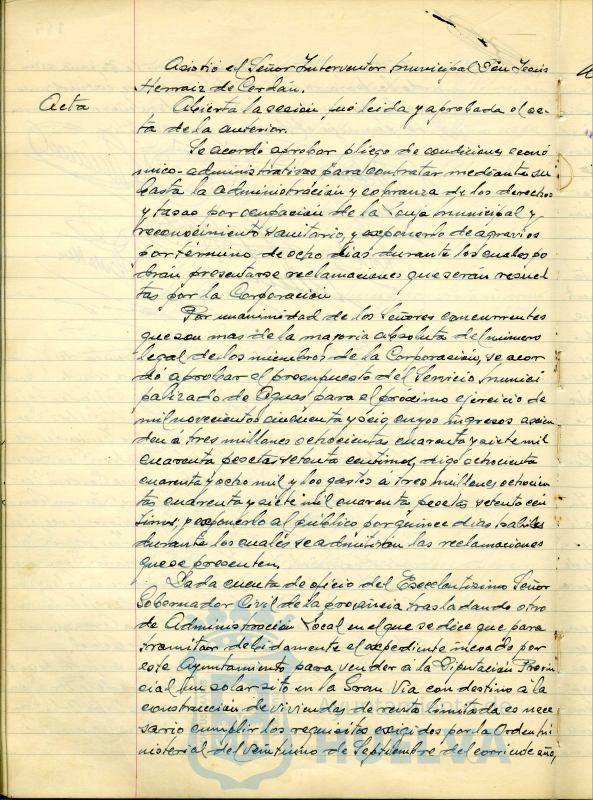 Asistió el Señor Interventor municipal Don Jesús
Herraiz de Cerdán.
Acta
Abierta la sesión, fué leida y aprobada el ac-
ta de la anterior.
Se acordó aprobar pliego de condiciones econó
mico-administrativas para contratar mediante su
basta la administración y cobranza de los derechos
y tasas por ocupación de la Lonja municipal y
reconocimiento sanitario, y exponerlo de agravios
por término de ocho dias durante los cuales po
drán presentarse reclamaciones que serán resuel
tas por la Corporación
Por unanimidad de los Señores concurrentes
que son mas de la mayoria absoluta del número
legal de los miembros de la Corporación, se acor
dó aprobar el presupuesto del Servicio munici
palizado de Aguas para el próximo ejercicio de
mil novecientos cincuenta y seis, cuyos ingresos ascien
den á tres millones ochocientas cuarenta y siete mil
cuarenta pesetas setenta centimos, digo ochocientas
cuarenta y ocho mil y los gastos a tres millones ochocien
tas cuarenta y siete mil cuarenta pesetas setenta cén
timos, y exponerlo al público por quince dias habiles
durante los cuales se admitirán las reclamaciones
que se presenten.
Dada cuenta de oficio del Excelentisimo Señor
Gobernador Civil de la provincia trasladando otro
de Administración Local en el que se dice que para
tramitar debidamente el expediente incoado por
este Ayuntamiento para vender a la Diputación Provin
cial un solar sito en la Gran Via con destino a la
construccion de viviendas de renta limitada es nece
sario cumplir los requisitos exigidos por la Orden mi
nisterial del veintiuno de Septiembre del corriente año,